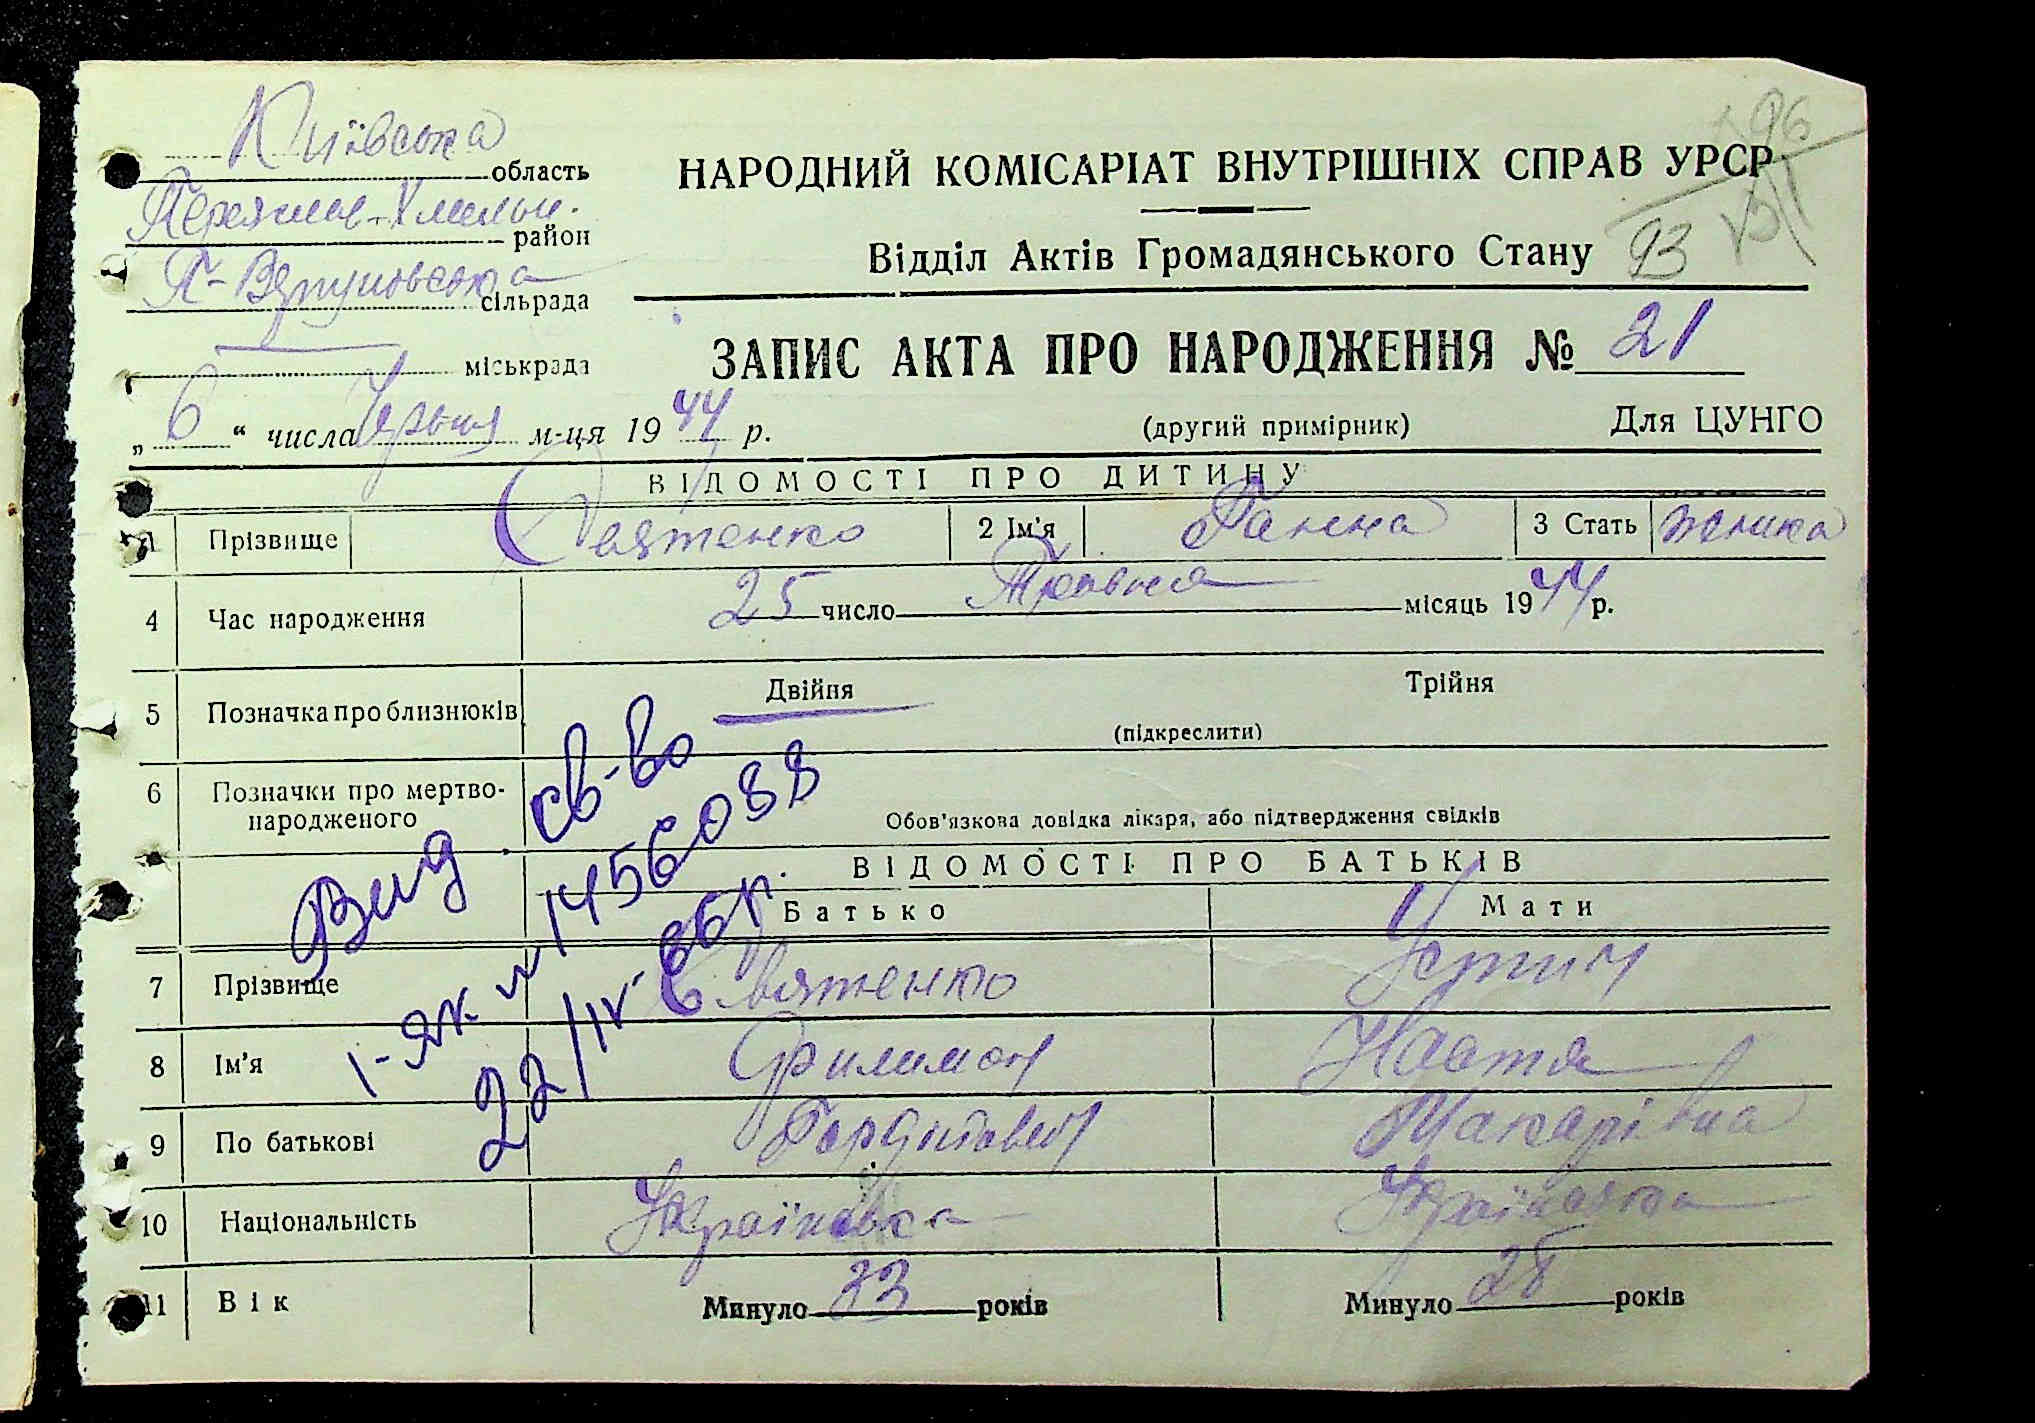 Київська область
Переяслав-Хмельн. район
П- сільрада
міськрада
НАРОДНИЙ КОМІСАРІАТ ВНУТРІШНІХ СПРАВ УРСР
96
93
Відділ Актів Громадянського Стану
ЗАПИС АКТА ПРО НАРОДЖЕННЯ № 21
„ 6 “ числа Червня м-ця 1944 р.
(другий примірник)
Для ЦУНГО
ВІДОМОСТІ ПРО ДИТИНУ
1 Прізвище Святенко 2 Ім'я Ганна 3 Стать жіноча
4 Час народження 25 число Травня місяць 1944 р.
5 Позначка про близнюків Двійня Трійня
(підкреслити)
6 Позначки про мертво-
народженого
Обов'язкова довідка лікаря, або підтвердження свідків
Вид св-во
І-ЯК № 1456088
22/IV-86 г.
ВІДОМОСТІ ПРО БАТЬКІВ
Батько Мати
7 Прізвище Святенко Устич
8 Ім'я Филимон Настя
9 По батькові Гордійович Макарівна
10 Національність Українська Українська
11 Вік Минуло 33 років Минуло 28 років